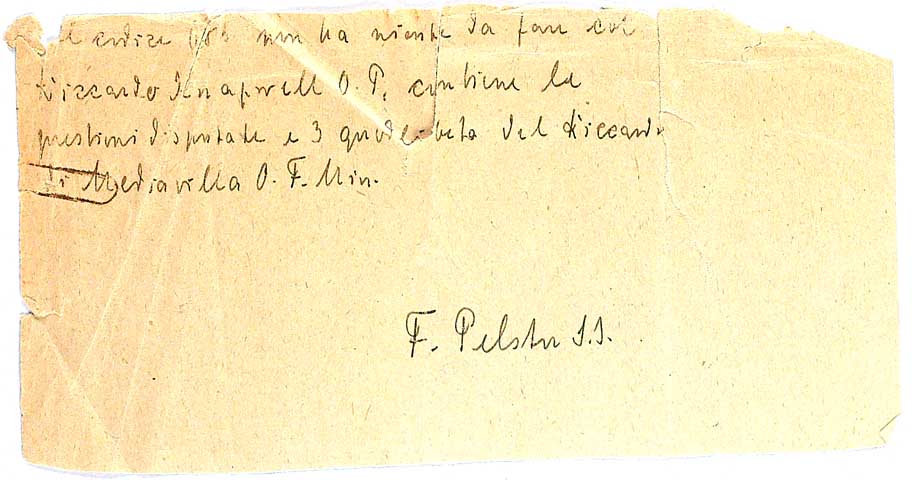 codice non ha niente da fare col
Riccardo Knapwell O. P. contiene le
questioni disputate e 3 quodlibeta del Riccardo
di Mediavilla O. F. Min.
F. Pelster S.J.